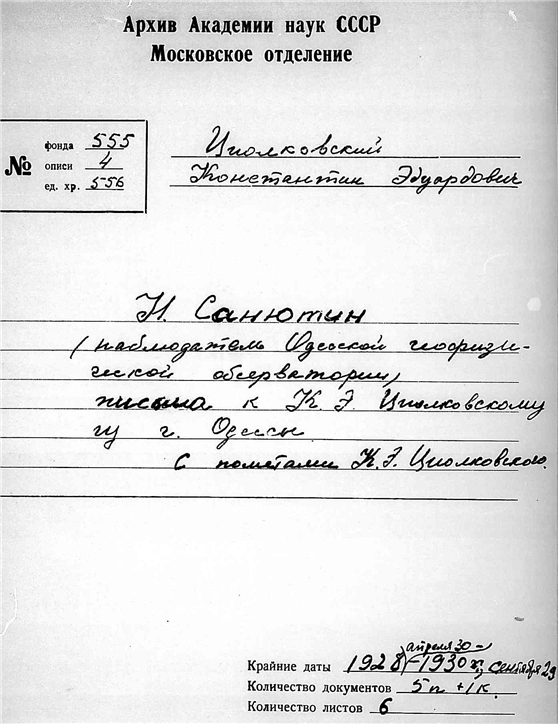 Архив Академии наук СССР
Московское отделение
№
фонда 555
описи 4
ед. хр. 556
Циолковский
Константин Эдуардович
Н. Санютин
(наблюдатель Одесской геофизи-
ческой обсерватории)
письма к К. Э. Циолковскому
из г. Одессы.
С пометами К. Э. Циолковского.
апреля 30 -
Крайние даты 1928 - 1930 г., сентября 29
Количество документов 5 п + 1 к.
Количество листов 6